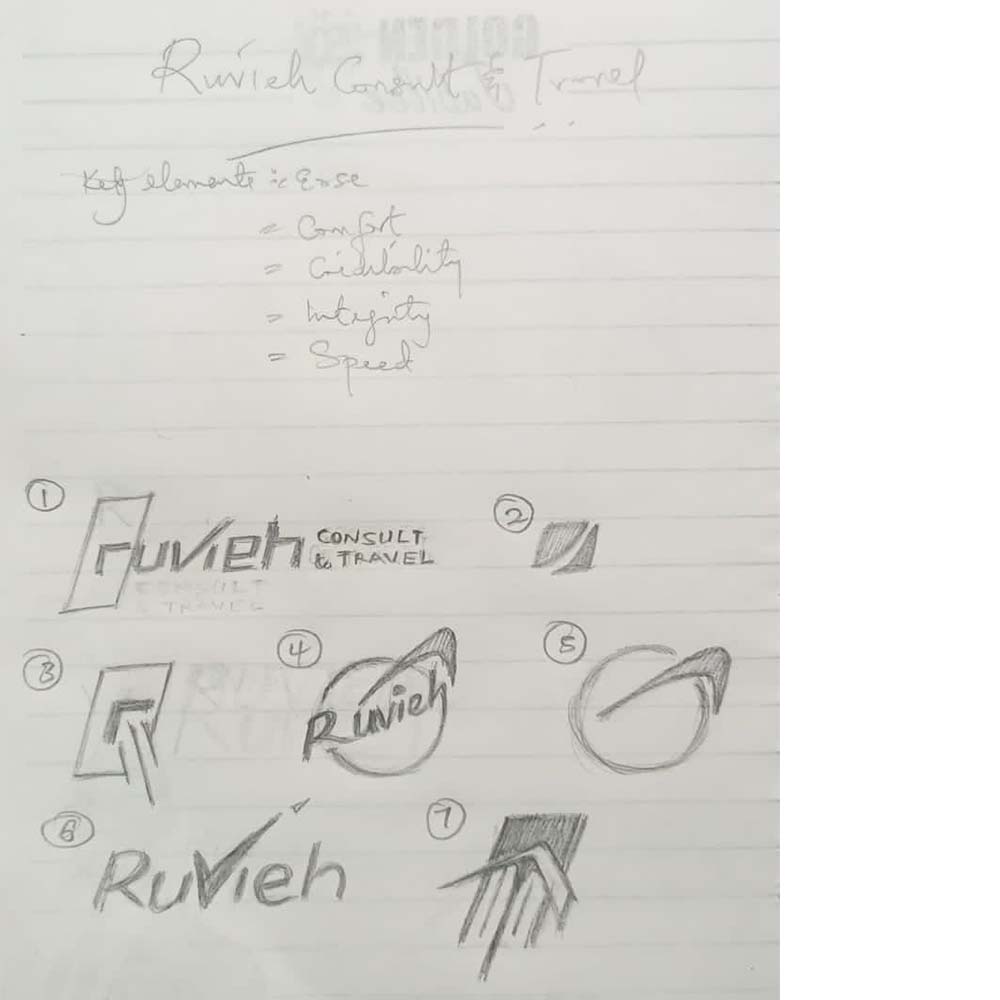 Ruvieh Consult & Travel
Key elements :- Ease
= Comfort
= Credibility
= Integrity
= Speed
1
ruvieh CONSULT
& TRAVEL
CONSULT
& TRAVEL
2
3
r
4
Ruvieh
5
6
Ruvieh
7